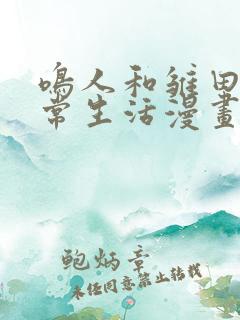 鳴人和雛田
常生活漫畫
鮑炳章
未经同意禁止转载